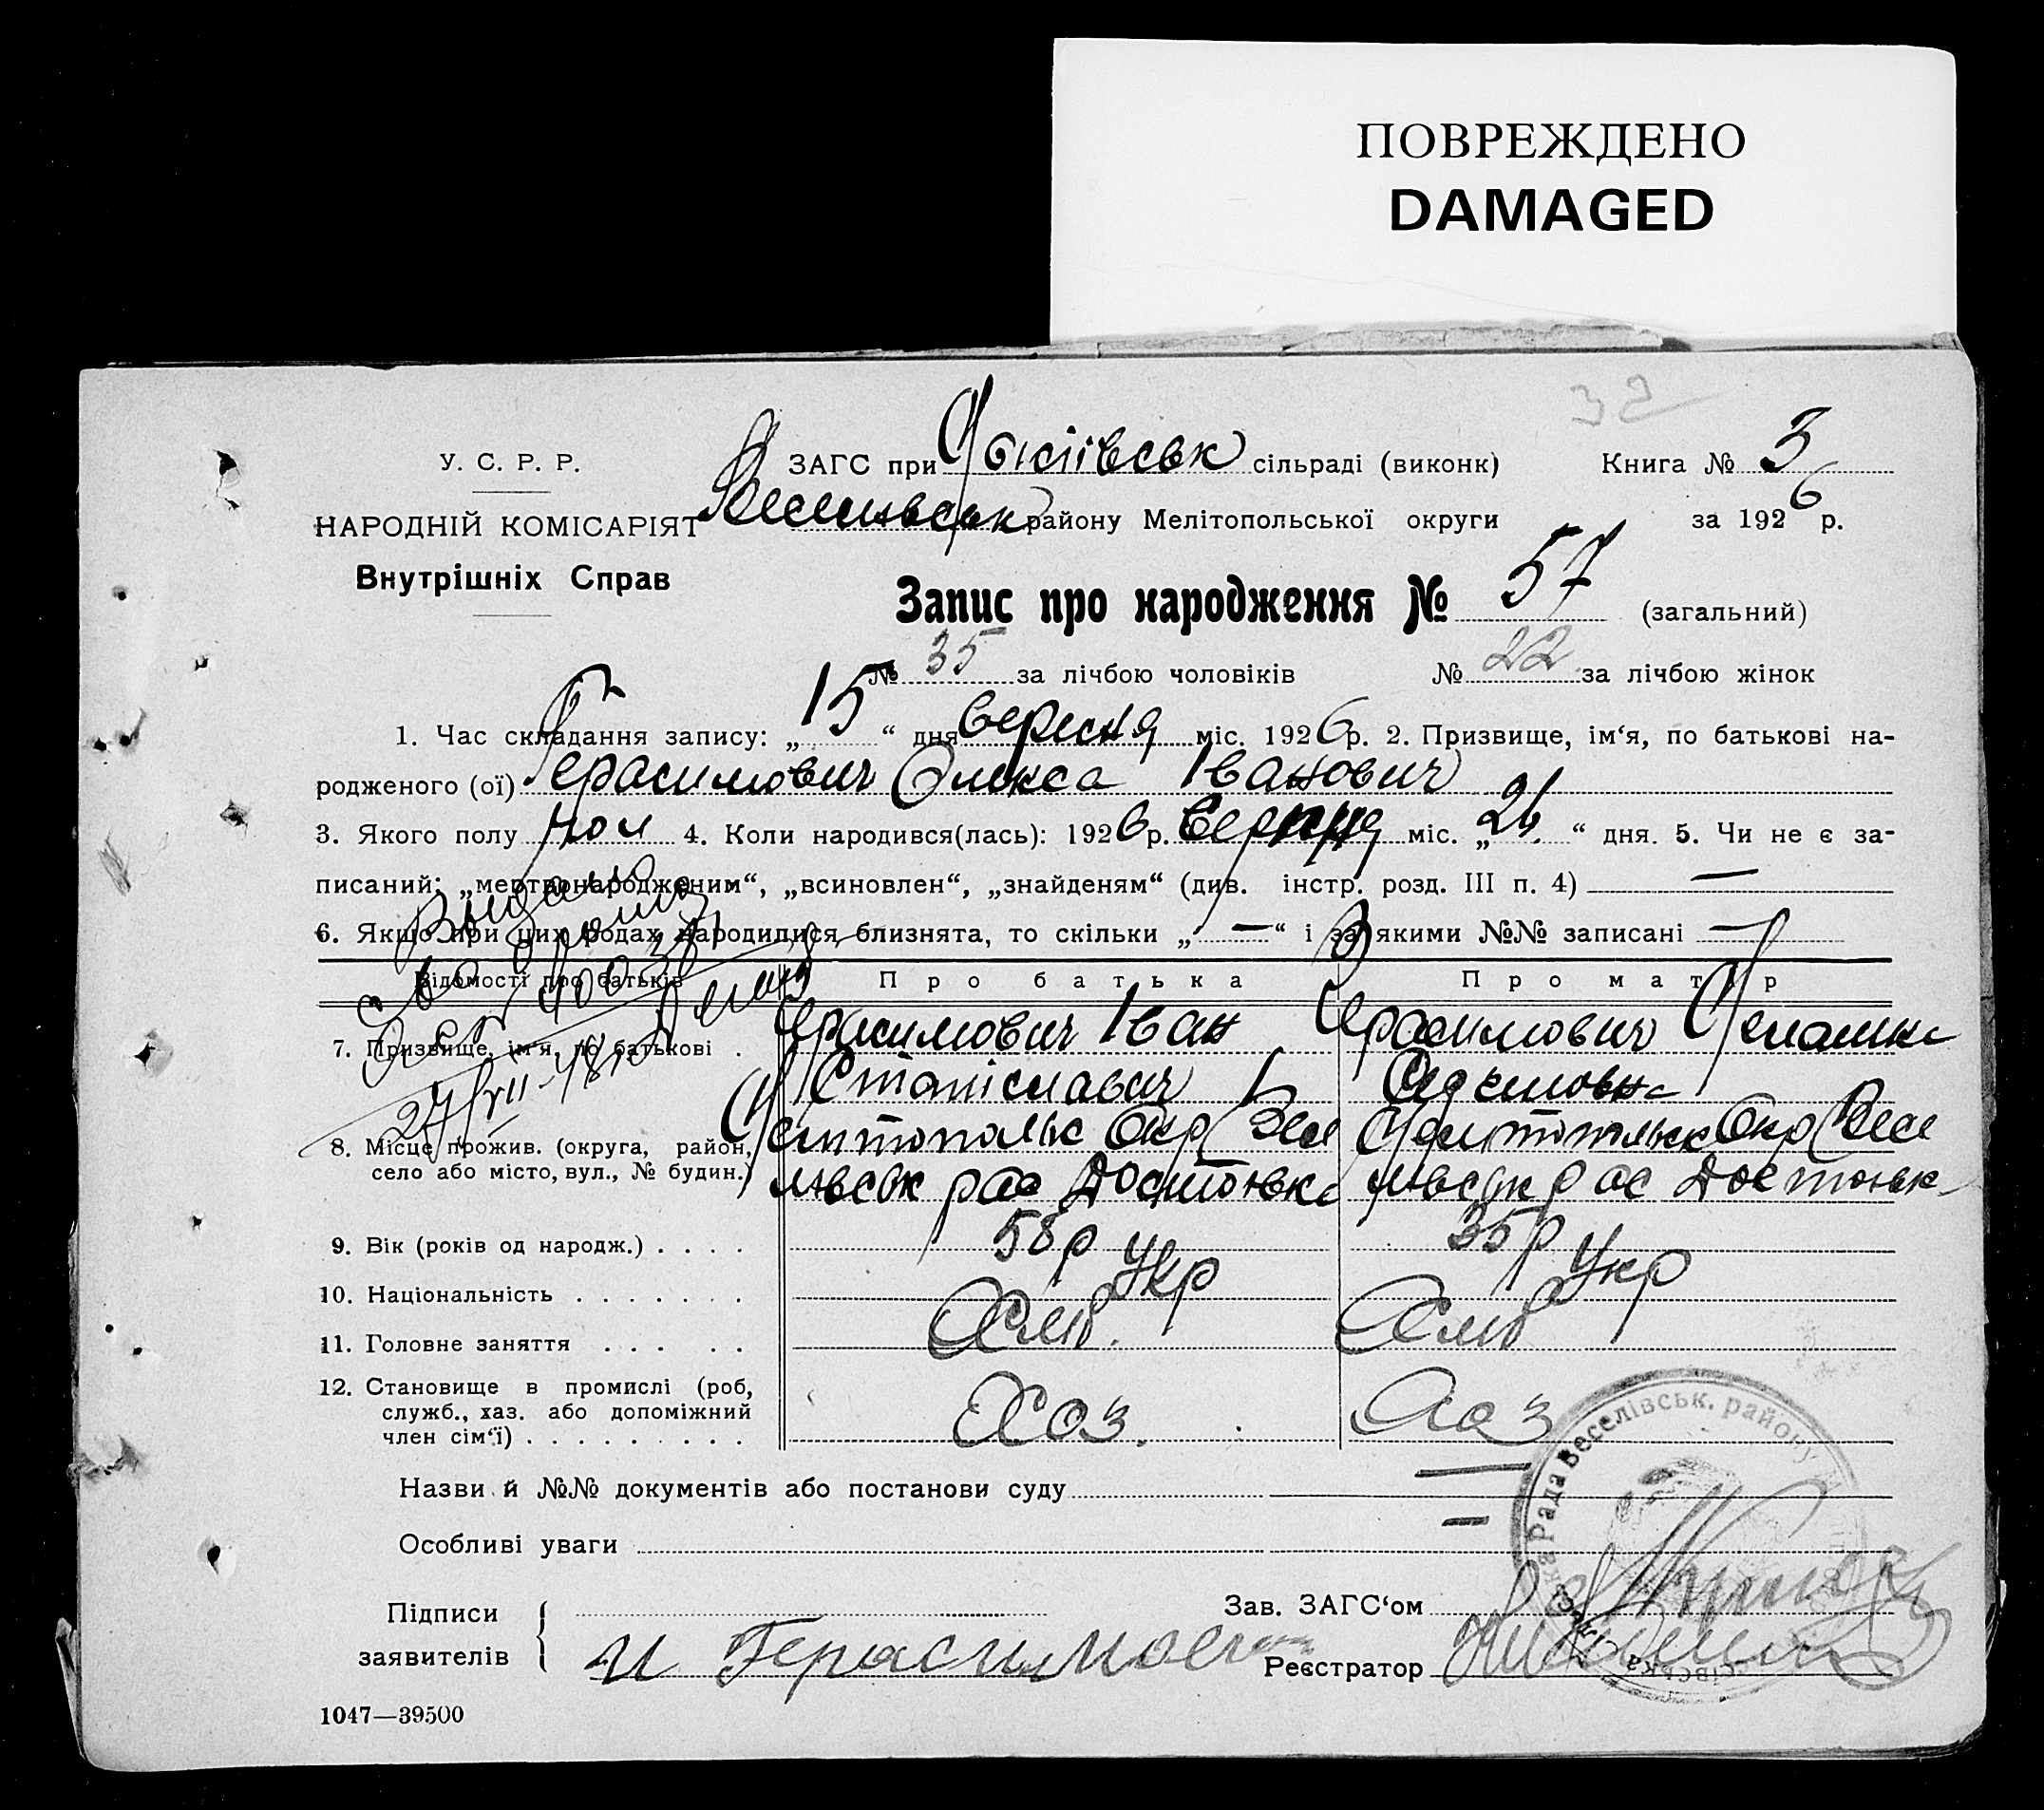 ПОВРЕЖДЕНО
DAMAGED
32
У. С. Р. Р.
НАРОДНІЙ КОМІСАРІЯТ
Внутрішніх Справ
ЗАГС при сільраді (виконк)
Книга № 3
району Мелітопольської округи
за 1926 р.
Запис про народження № 57 (загальний)
№ 35 за лічбою чоловіків № 22 за лічбою жінок
1. Час складання запису: „ 15 “ дня вересня міс. 1926 р. 2. Призвище, ім‘я, по батькові на-
родженого (ої) Герасимович Олекса Іванович
3. Якого полу чол 4. Коли народився(лась): 1926 р. міс. „ “ дня. 5. Чи не є за-
писаний: „мертвонародженим“, „всиновлен“, „знайденям“ (див. інстр. розд. III п. 4) —
6. Якщо при цих родах народилися близнята, то скільки „ — “ і за якими №№ записані —
Відомості про батьків
Про батька
Про матір
7. Призвище, ім‘я, по батькові .
Герасимович Іван
Станіславич
Герасимович
8. Місце прожив. (округа, район,
село або місто, вул., № будин.)
Мелітопольс Окр Весе
лівськ
Мелітопольськ Окр Весе
лівськ
9. Вік (років од народж.) . . . .
58 р
35 р
10. Національність . . . . . . .
Укр
Укр
11. Головне заняття . . . . .
Хліб.
Хліб
12. Становище в промислі (роб,
служб., хаз. або допоміжний
член сім‘ї) . . . . . . . . .
Хоз.
Хоз
Назви й №№ документів або постанови суду —
Особливі уваги —
Підписи
заявителів
И Герасимович
Зав. ЗАГС‘ом
Реєстратор
Рада Веселівськ. району
1047—39500